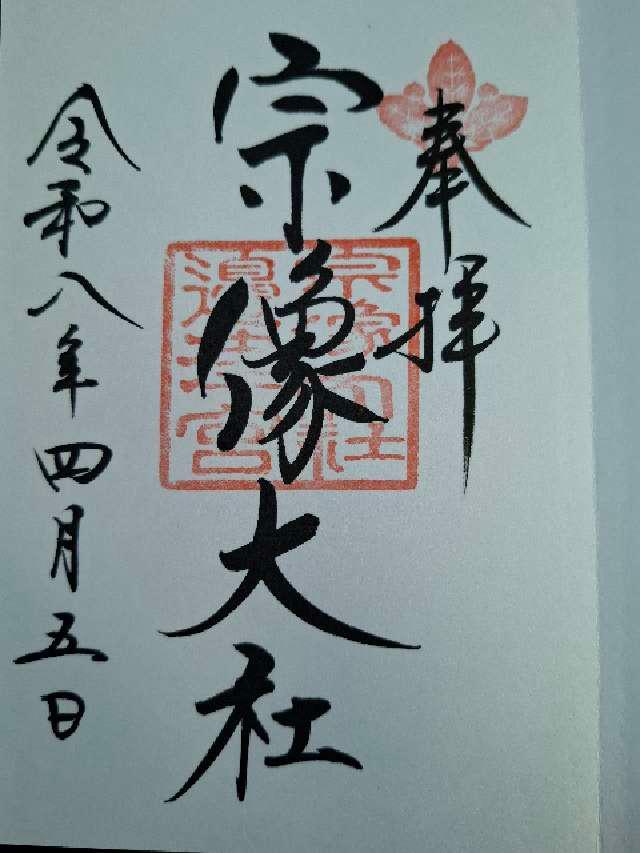 奉拝
宗像大社
宗像大社
邉津宮
令和八年四月五日